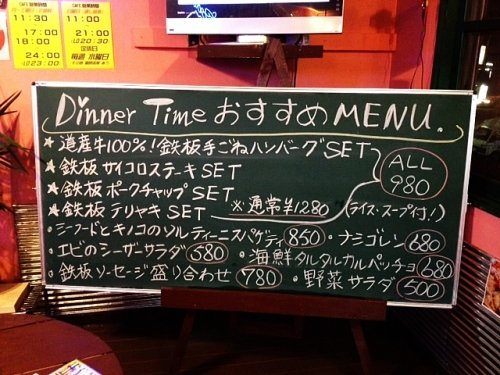 CAFE営業時間
11:30
17:00
18:00
24:00
LO23:00
11:00
21:00
LO20:30
定休日
毎週 水曜日
Dinner Time おすすめMENU.
★道産牛100%!鉄板手ごねハンバーグSET
★鉄板 サイコロステーキSET
ALL 980
★鉄板 ポークチャップSET
★鉄板 テリヤキSET ※通常¥1280 (ライス・スープ付!)
・シーフードとキノコのソルティーニスパゲティ 850 ・ナシゴレン 680
・エビのシーザーサラダ 580 ・海鮮タルタルカルパッチョ 680
・鉄板ソーセージ盛り合わせ 780 ・野菜サラダ 500